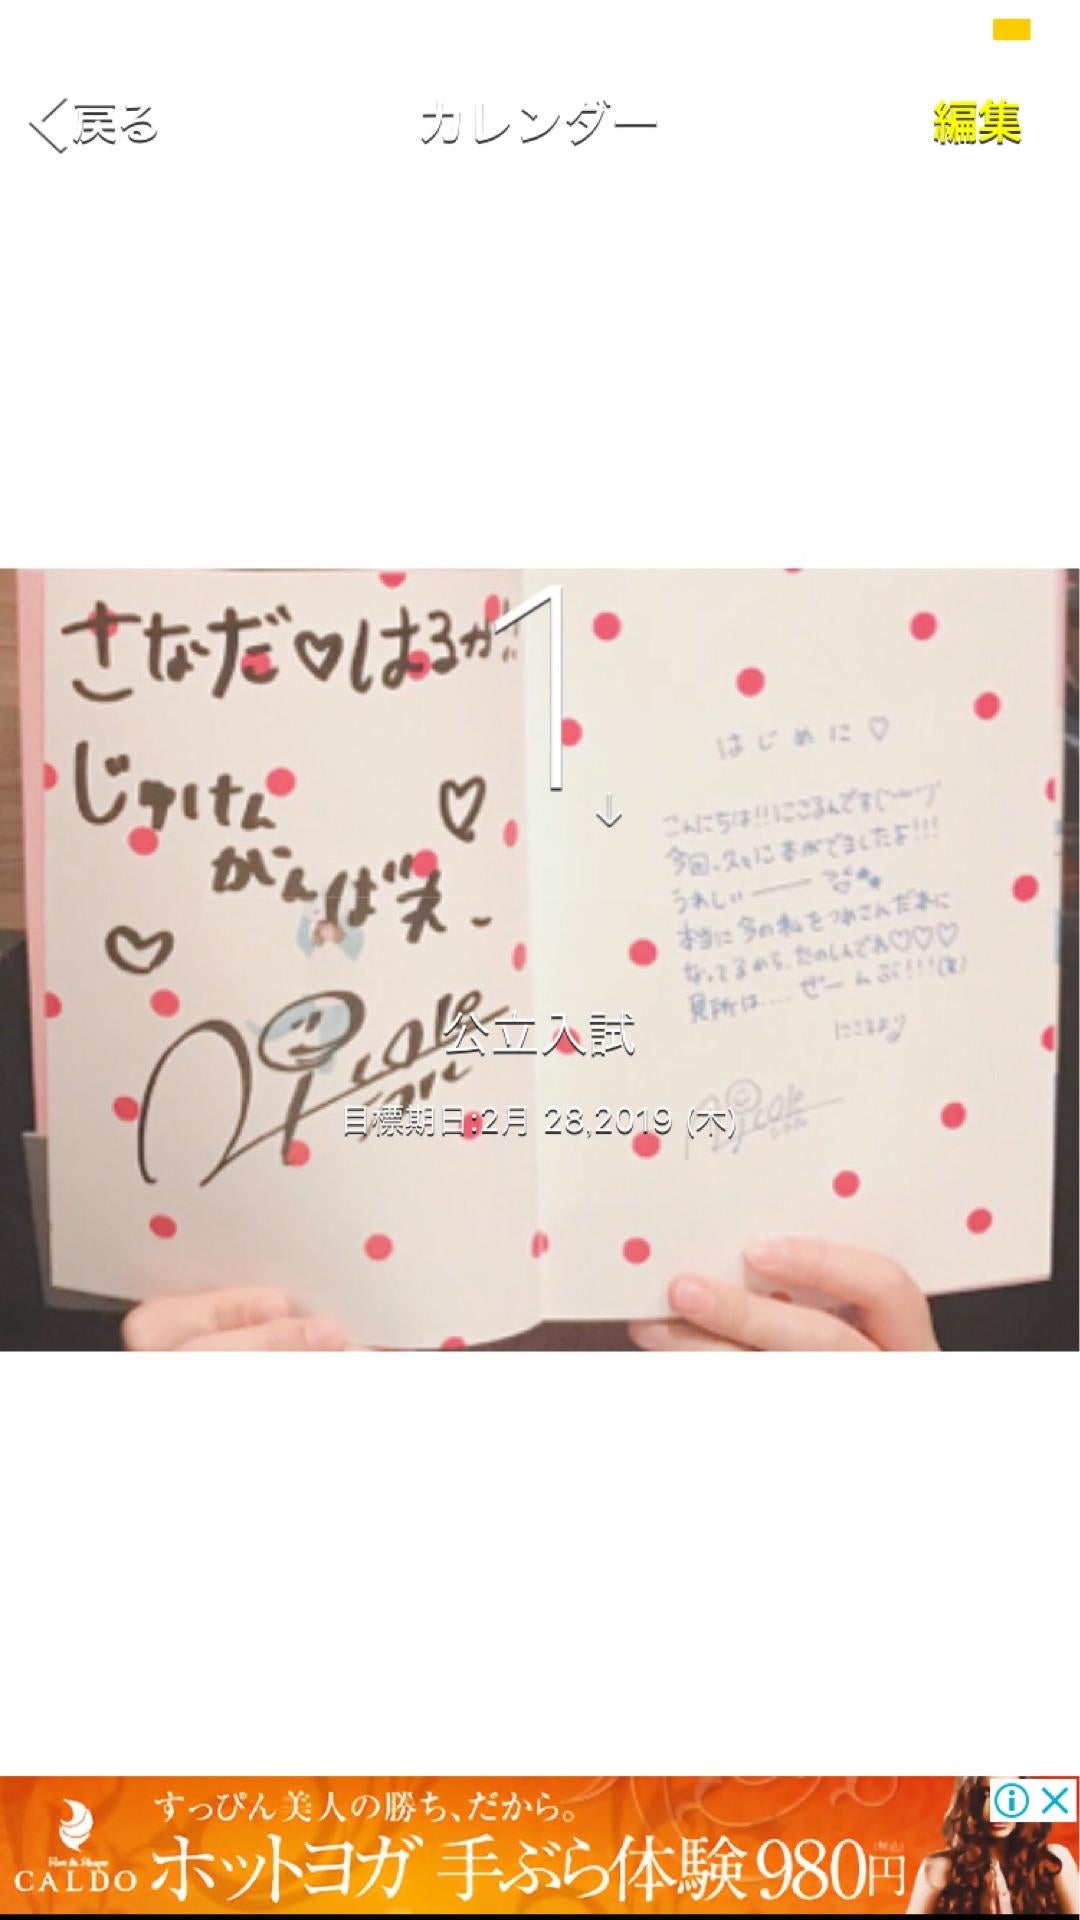 戻る
カレンダー
編集
さなだ♡はるか!!
じゅけん
がんば
1
↓
はじめに♡
こんにちは!!にこるんです
今回、ついに本がでましたよ!!!
うれしい――
本当に今の私をつめこんだ本に
なってるから、たのしんでね♡♡♡
見所は....ぜーんぶ!!!(笑)
にこるより
Nicole
公立入試
目標期日:2月 28,2019 (木)
すっぴん美人の勝ち、だから。
Hot & Shape
CALDO
ホットヨガ 手ぶら体験980円
(税込)